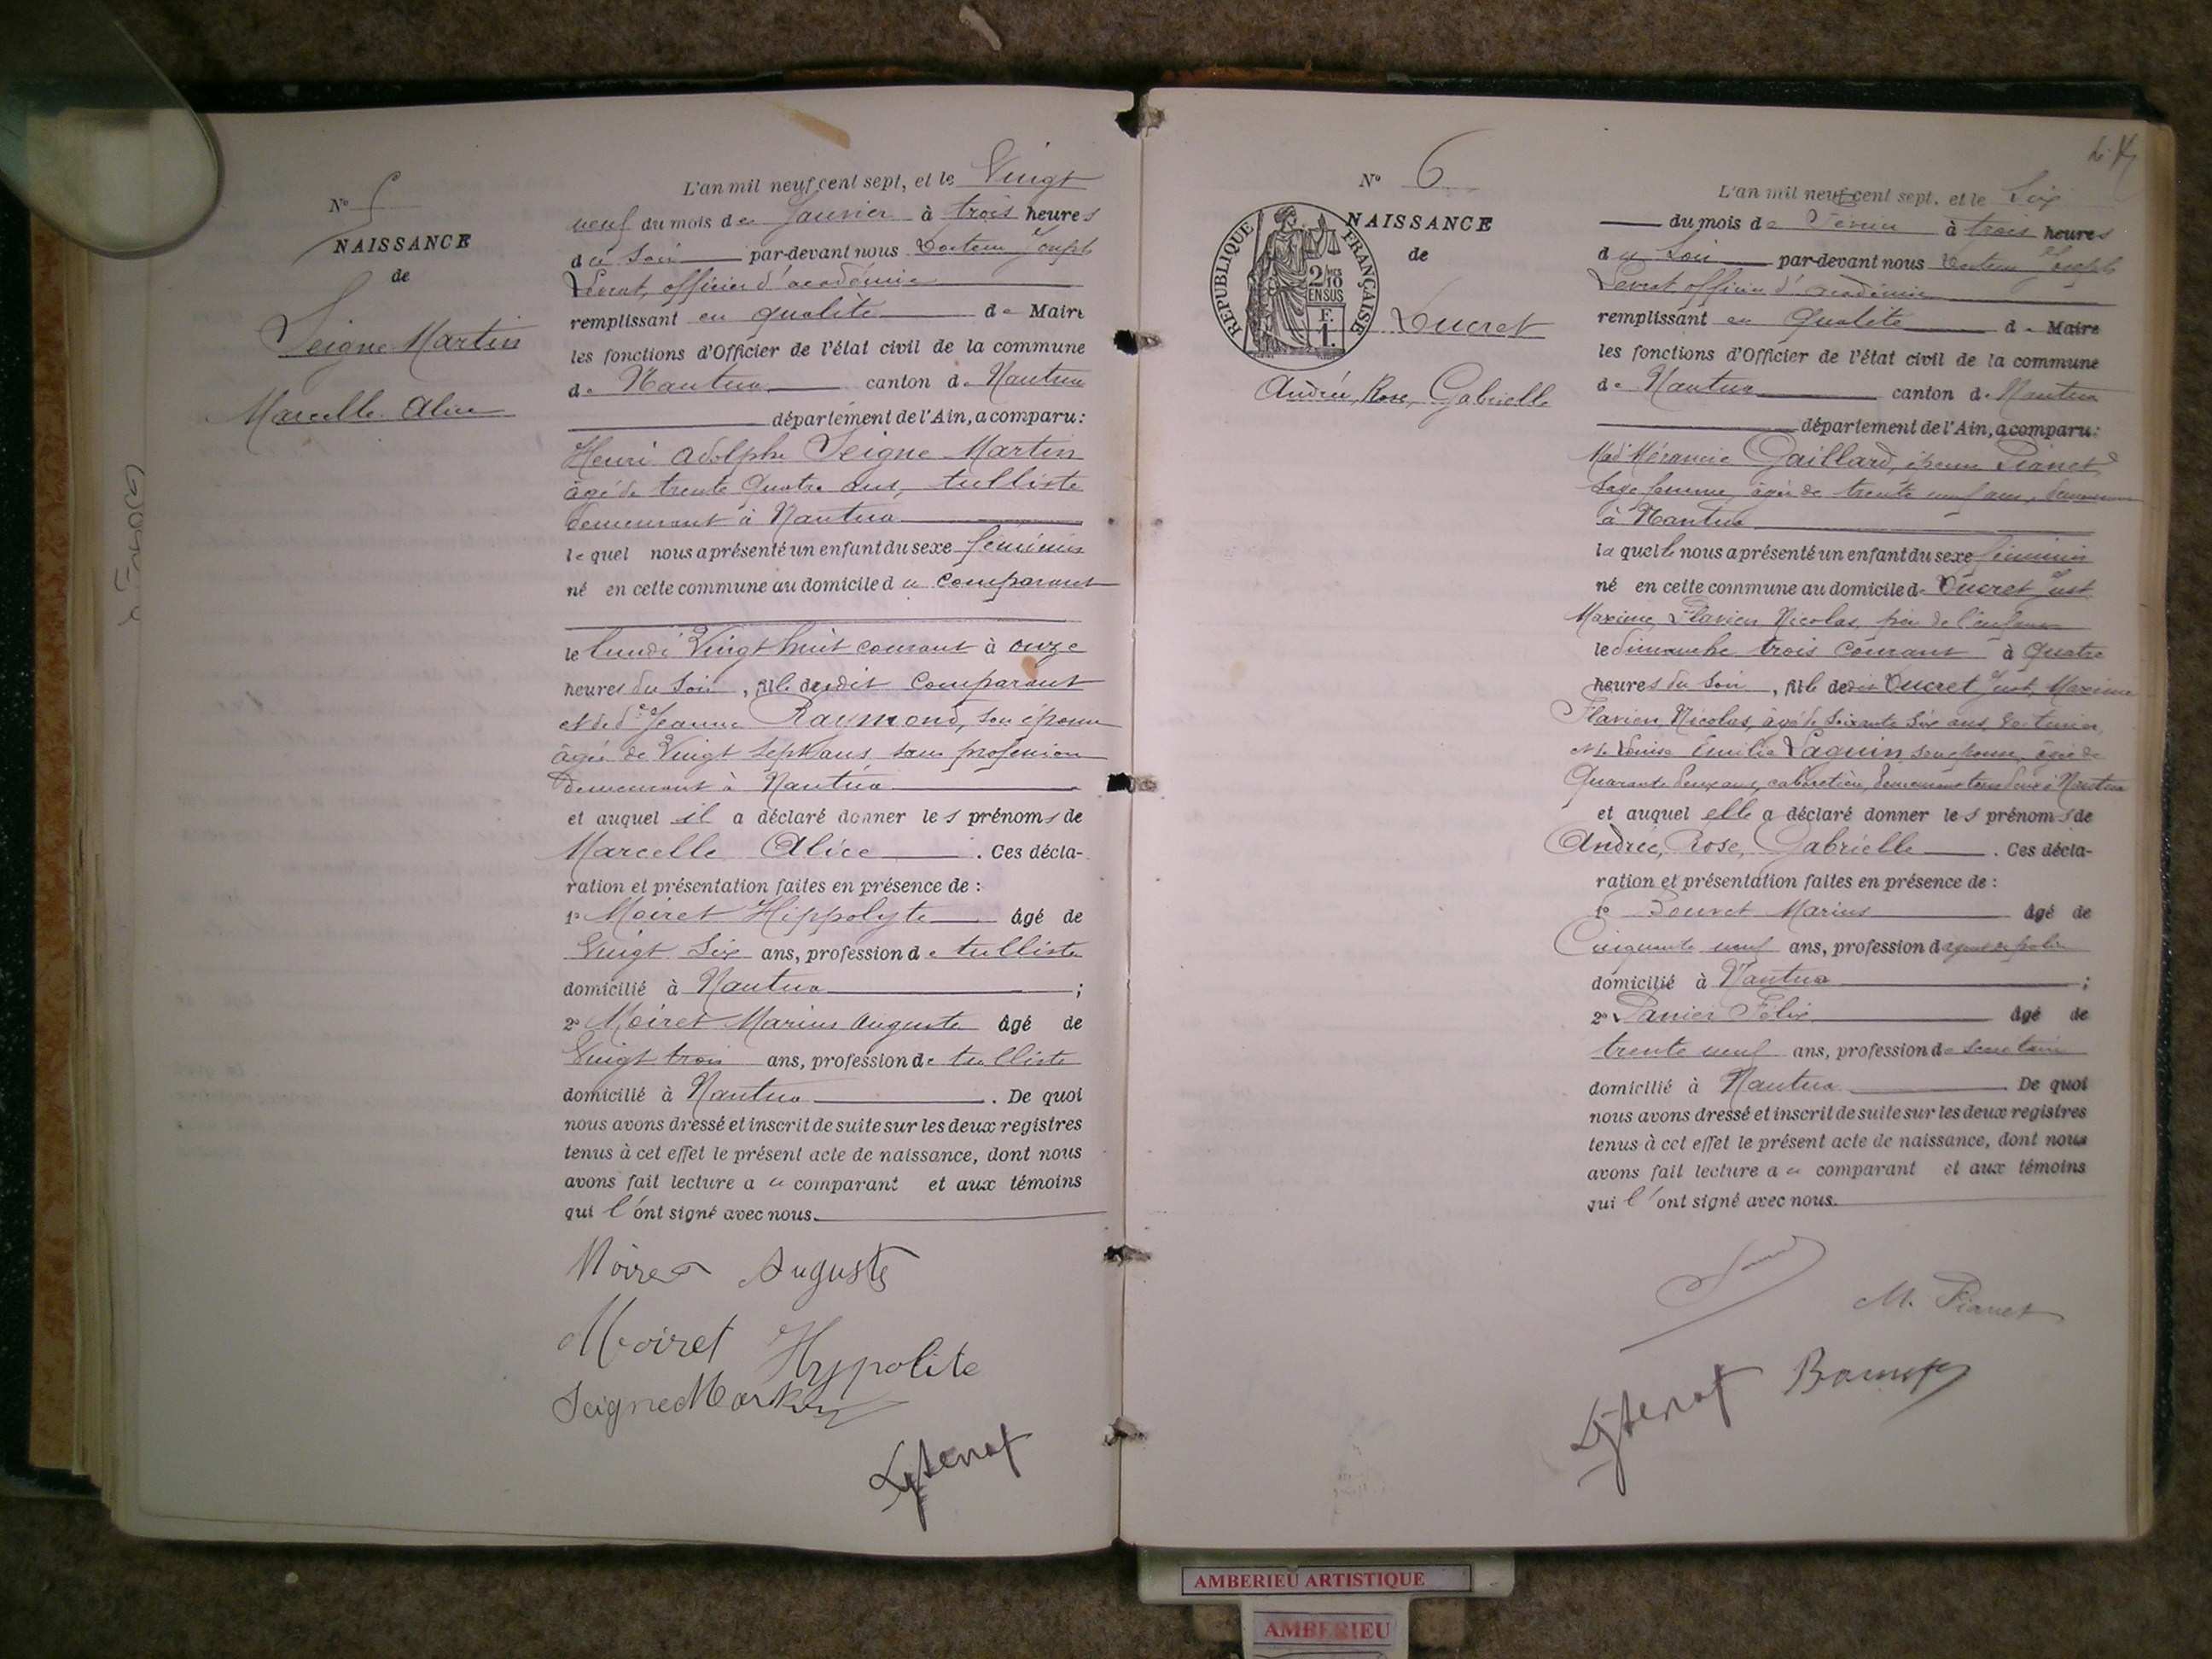 N° 5
NAISSANCE
de
Seigne Martin
Marcelle Alice
L'an mil neuf cent sept, et le Vingt
neuf du mois de Janvier à trois heures
du Soir par-devant nous Docteur Joseph
Levrat, officier d'académie
remplissant en qualité de Maire
les fonctions d'Officier de l'état civil de la commune
de Nantua canton de Nantua
département de l'Ain, a comparu:
Henri Adolphe Seigne Martin
âgé de trente quatre ans, tulliste
demeurant à Nantua
lequel nous a présenté un enfant du sexe féminin
né en cette commune au domicile du Comparant
le lundi Vingt huit courant à onze
heures du Soir, fille dudit Comparant
et de Jeanne Raymond, son épouse
âgée de Vingt Sept ans, sans profession
demeurant à Nantua
et auquel il a déclaré donner les prénoms de
Marcelle Alice. Ces décla-
ration et présentation faites en présence de :
1° Moiret Hippolyte âgé de
Vingt Six ans, profession de tulliste
domicilié à Nantua ;
2° Moiret Marius Auguste âgé de
Vingt trois ans, profession de tulliste
domicilié à Nantua. De quoi
nous avons dressé et inscrit de suite sur les deux registres
tenus à cet effet le présent acte de naissance, dont nous
avons fait lecture au comparant et aux témoins
qui l'ont signé avec nous.
Moiret Auguste
Moiret Hypolite
Seigne Martin
N° 6
NAISSANCE
de
RÉPUBLIQUE FRANÇAISE
2/10
EN SUS
F.
1.
Ducret
Andrée, Rose, Gabrielle
L'an mil neuf cent sept, et le Six
du mois de Février à trois heures
du Soir par-devant nous Docteur Joseph
Levrat officier d'académie
remplissant en qualité de Maire
les fonctions d'Officier de l'état civil de la commune
de Nantua canton de Nantua
département de l'Ain, a comparu:
Gaillard, épouse Pianet
Sage femme, âgée de trente neuf ans, demeurant
à Nantua
laquelle nous a présenté un enfant du sexe féminin
né en cette commune au domicile de Ducret Just
Maxime, Flavien Nicolas, père de l'enfant
le dimanche trois courant à Quatre
heures du Soir, fille dudit Ducret Just, Maxime
Flavien, Nicolas, âgé de Soixante Six ans,
et de Louise Emilie Paquin son épouse, âgée de
Quarante deux ans, cabaretière, demeurant tous deux à Nantua
et auquel elle a déclaré donner les prénoms de
Andrée, Rose, Gabrielle. Ces décla-
ration et présentation faites en présence de :
1° Bouvet Marius âgé de
Cinquante neuf ans, profession d'agent de police
domicilié à Nantua ;
2° Panier Félix âgé de
trente neuf ans, profession de secrétaire
domicilié à Nantua. De quoi
nous avons dressé et inscrit de suite sur les deux registres
tenus à cet effet le présent acte de naissance, dont nous
avons fait lecture au comparant et aux témoins
qui l'ont signé avec nous.
M. Pianet
AMBERIEU ARTISTIQUE
AMBERIEU